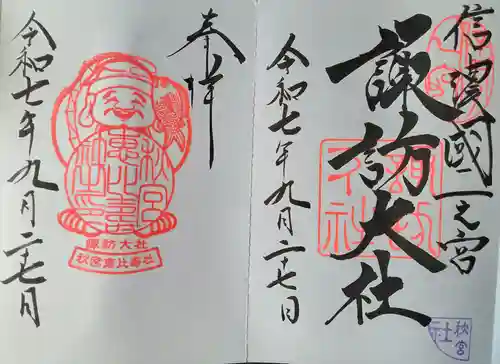 信濃國一之宮
諏訪大社
令和七年九月二十七日
秋宮
社
奉拝
秋宮
恵比壽
社之印
諏訪大社
秋宮恵比寿社
令和七年九月二十七日